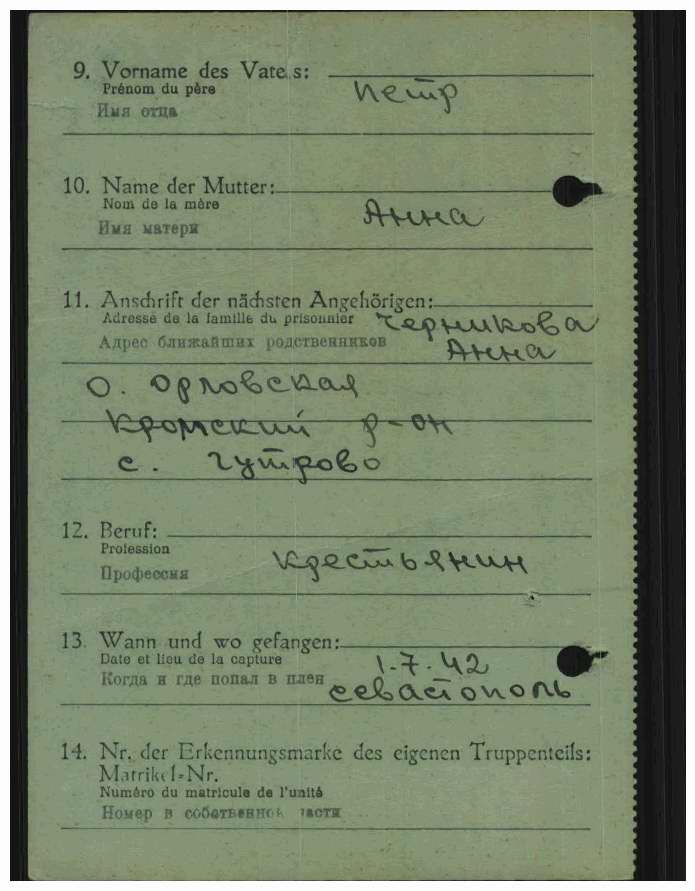 9. Vorname des Vaters:
Prénom du père
Имя отца
Петр
10. Name der Mutter:
Nom de la mère
Имя матери
Анна
11. Anschrift der nächsten Angehörigen:
Adresse de la famille du prisonnier
Адрес ближайших родственников
Черникова
Анна
О. Орловская
Кромский р-он
с. Гутрово
12. Beruf:
Profession
Профессия
Крестьянин
13. Wann und wo gefangen:
Date et lieu de la capture
Когда и где попал в плен
1.7.42
Севастополь
14. Nr. der Erkennungsmarke des eigenen Truppenteils:
Matrikel-Nr.
Numéro du matricule de l'unité
Номер в собственной части